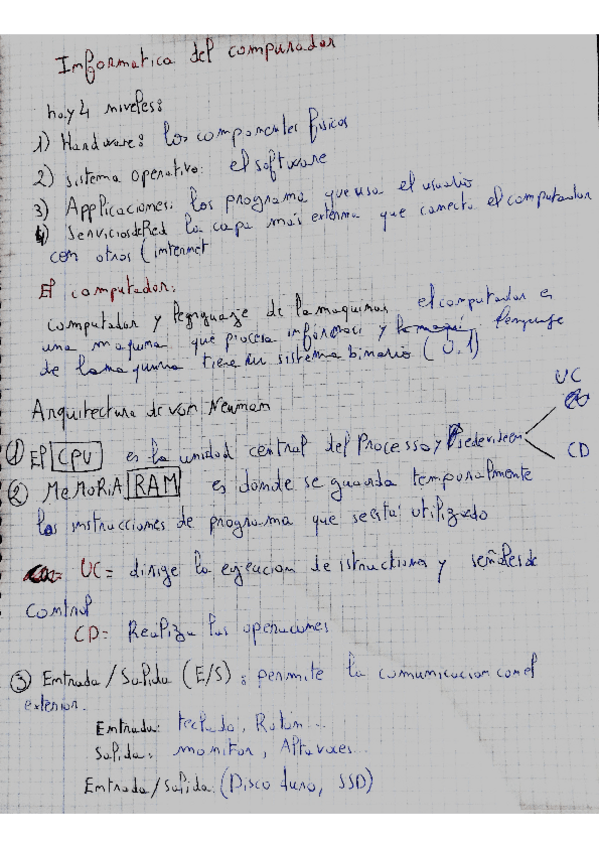 Informatica del computador
hay 4 niveles:
1) Hardware: los componentes fisicos
2) sistema operativo: el software
3) Applicaciones: los programa que usa el usuario
4) Servicios de Red la capa más externa que conecta el computador
con otros (internet
El computador:
computador y lenguaje de la maquinas el computador es
una maquina que procesa y lenguaje
de la maquina tiene un sistema binario (0,1)
Arquitectura de von Neuman
UC
① El CPU es la unidad central del Processo y se devide en
CD
② MeMoRiA RAM es donde se guarda temporalmente
las instrucciones de programa que se está utilizado
UC= dirige la ejecucion de istructiones y señales de
control
CD= Realiza las operaciones
③ Entrada/Salida (E/S): permite la comunicacion con el
exterior.
Entrada: teclado, Ratón...
Salida: monitor, Altavoces...
Entrada/Salida: (Disco duro, SSD)